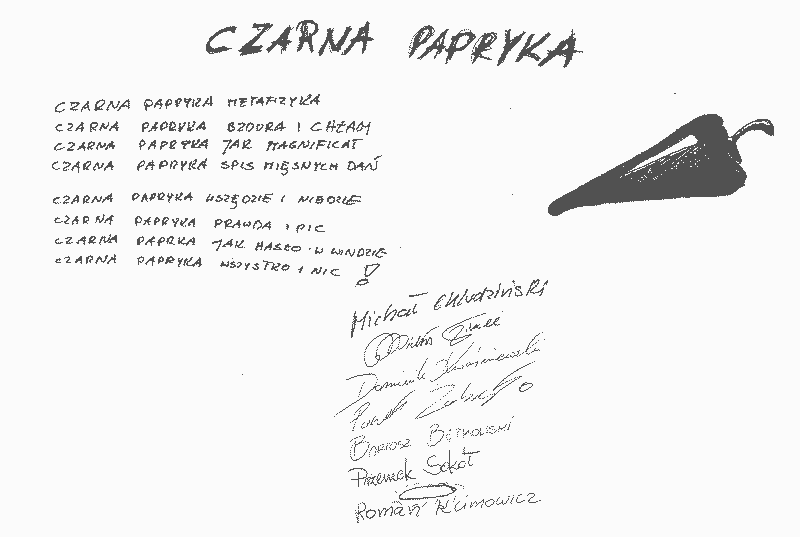 CZARNA PAPRYKA
CZARNA PAPRYKA METAFIZYKA
CZARNA PAPRYKA BZDURA I CHŁAM
CZARNA PAPRYKA JAK MAGNIFICAT
CZARNA PAPRYKA SPIS MIĘSNYCH DAŃ
CZARNA PAPRYKA WSZĘDZIE I NIGDZIE
CZARNA PAPRYKA PRAWDA I PIC
CZARNA PAPRKA JAK HASŁO W WINDZIE
CZARNA PAPRYKA WSZYSTKO I NIC !
Michał Chludziński
Dominik
Paweł
Dariusz Bętkowski
Przemek Sokół
Roman Klimowicz